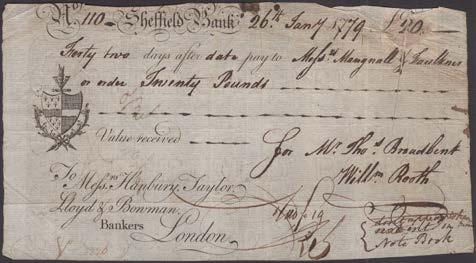 No. 110 - Sheffield Bank, 26th Jany 1779 £20.
Forty two days after date pay to Messrs Mangnall & Faulkner
or order Twenty Pounds
Value received
for Mr. Thos. Broadbent
Willm Booth
To
Messrs Hanbury, Taylor,
Lloyd & Bowman,
Bankers
London.
Note Book